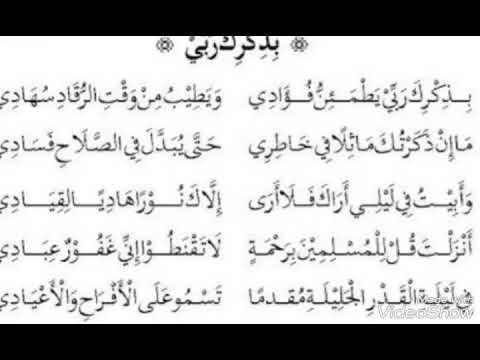 بِذِكْرِكَ رَبِّيْ
بِذِكْرِكَ رَبِّيْ يَطْمَئِنُّ فُؤَادِي وَيَطِيْبُ مِنْ وَقْتِ الرُّقَادِ سُهَادِي
مَا إِنْ ذَكَرْتُكَ مَاثِلًا فِي خَاطِرِي حَتَّى يُبَدَّلَ فِي الصَّلَاحِ فَسَادِي
وَأَبِيْتُ فِي لَيْلِي أَرَاكَ فَلَا أَرَى إِلَّاكَ نُوْرًا هَادِيًا لِقِيَادِي
أَنْزَلْتَ قُلْ لِلْمُسْلِمِيْنَ بِرَحْمَةٍ لَا تَقْنَطُوا إِنِّي غَفُوْرٌ عِبَادِي
فِي لَيْلَةِ الْقَدْرِ الْجَلِيْلَةِ مُقْدِمًا تَسْمُو عَلَى الْأَفْرَاحِ وَالْأَعْيَادِ
Made with
VideoShow